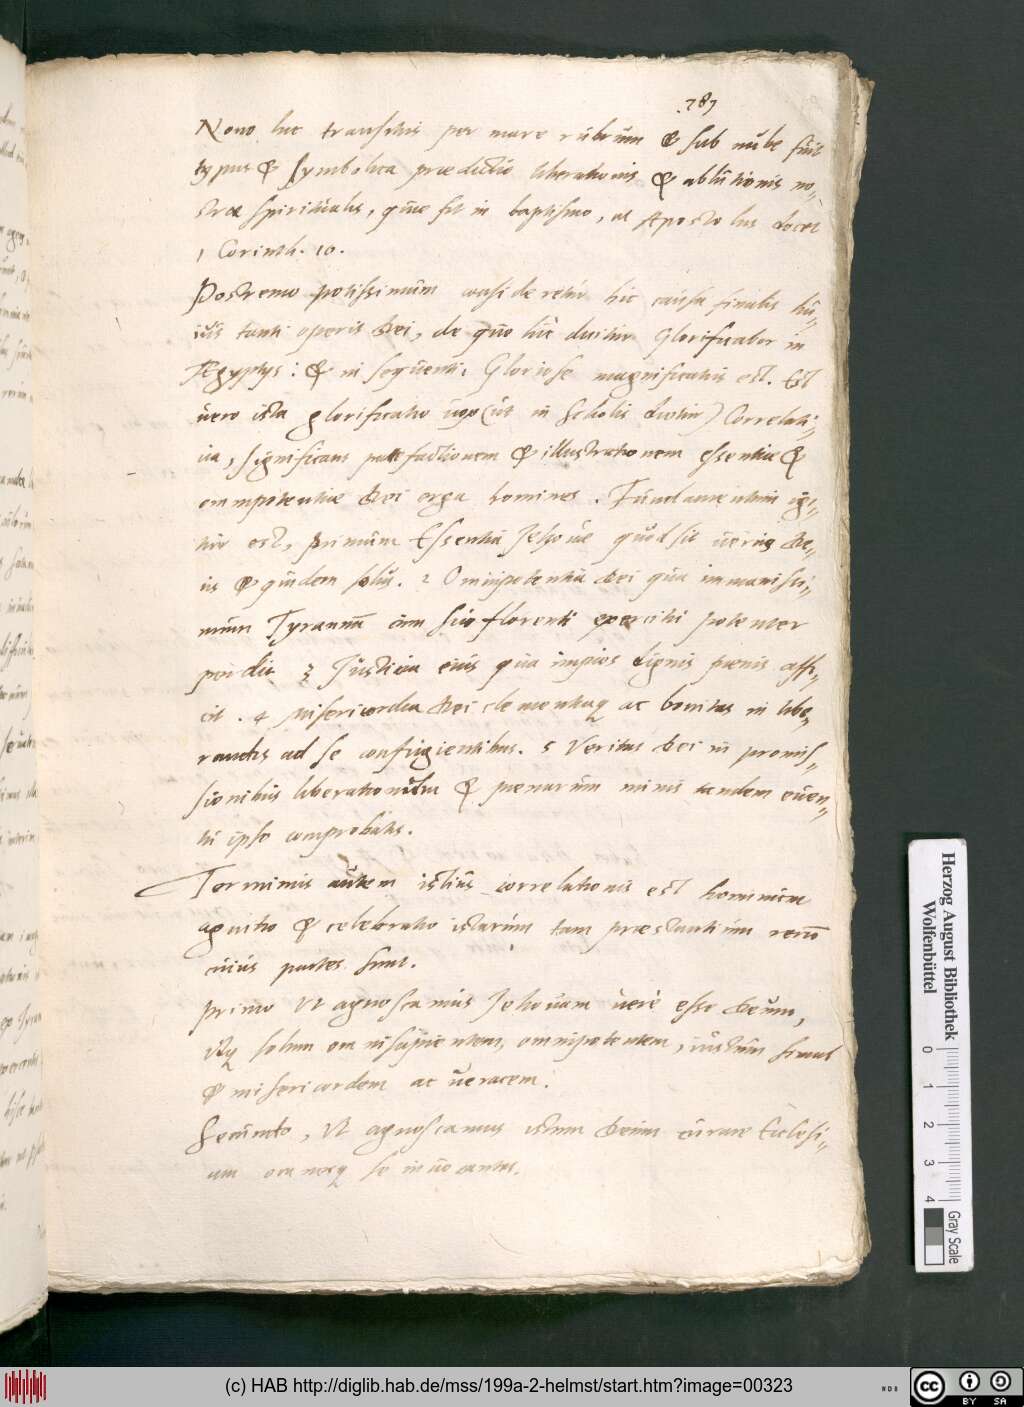 787
Nono hic transitus per mare rubrum & sub nube fuit
typus & symbolica praedictio liberationis & ablutionis no-
strae spiritualis, quae fit in baptismo, ut Apostolus docet
1 Corinth. 10.
Postremo potissimum consideretur hic causa finalis hu-
ius tanti operis Dei, de quo hic dicitur Glorificabor in
Aegyptys: & in sequenti, Gloriose magnificatus est. Est
vero ista glorificatio (ut in scholis dicitur) Correlati-
va, significans patefactionem & illustrationem essentiae &
omnipotentiae Dei erga homines. Fundamentum igi-
tur est, primum Essentia Jehovae quod sit verus De-
us & quidem solus. 2 Omnipotentia Dei qua immanissi-
mum Tyrannũ cum suo florenti exercitu potenter
perdit 3 Justicia eius qua impios dignis poenis affi-
cit. 4 Misericordia Dei clementiaq ac bonitas in libe-
randis ad se confugientibus. 5 Veritas Dei in promis-
sionibus liberationum & poenarum minis tandem even-
tu ipso comprobatis.
Terminus autem istius correlationis est hominum
agnitio & celebratio istarum tam praestantium rerũ
cuius partes sunt.
Primo Ut agnoscamus Jehovam verè esse Deum,
istq solum omnisapientem, omnipotentem, iustum simul
& misericordem ac veracem.
Secundo, Ut agnoscamus istum Deum curare Ecclesi-
am omnemq se invocantes.
Herzog August Bibliothek
Wolfenbüttel
0 1 2 3 4
Gray Scale
(c) HAB http://diglib.hab.de/mss/199a-2-helmst/start.htm?image=00323
cc BY SA